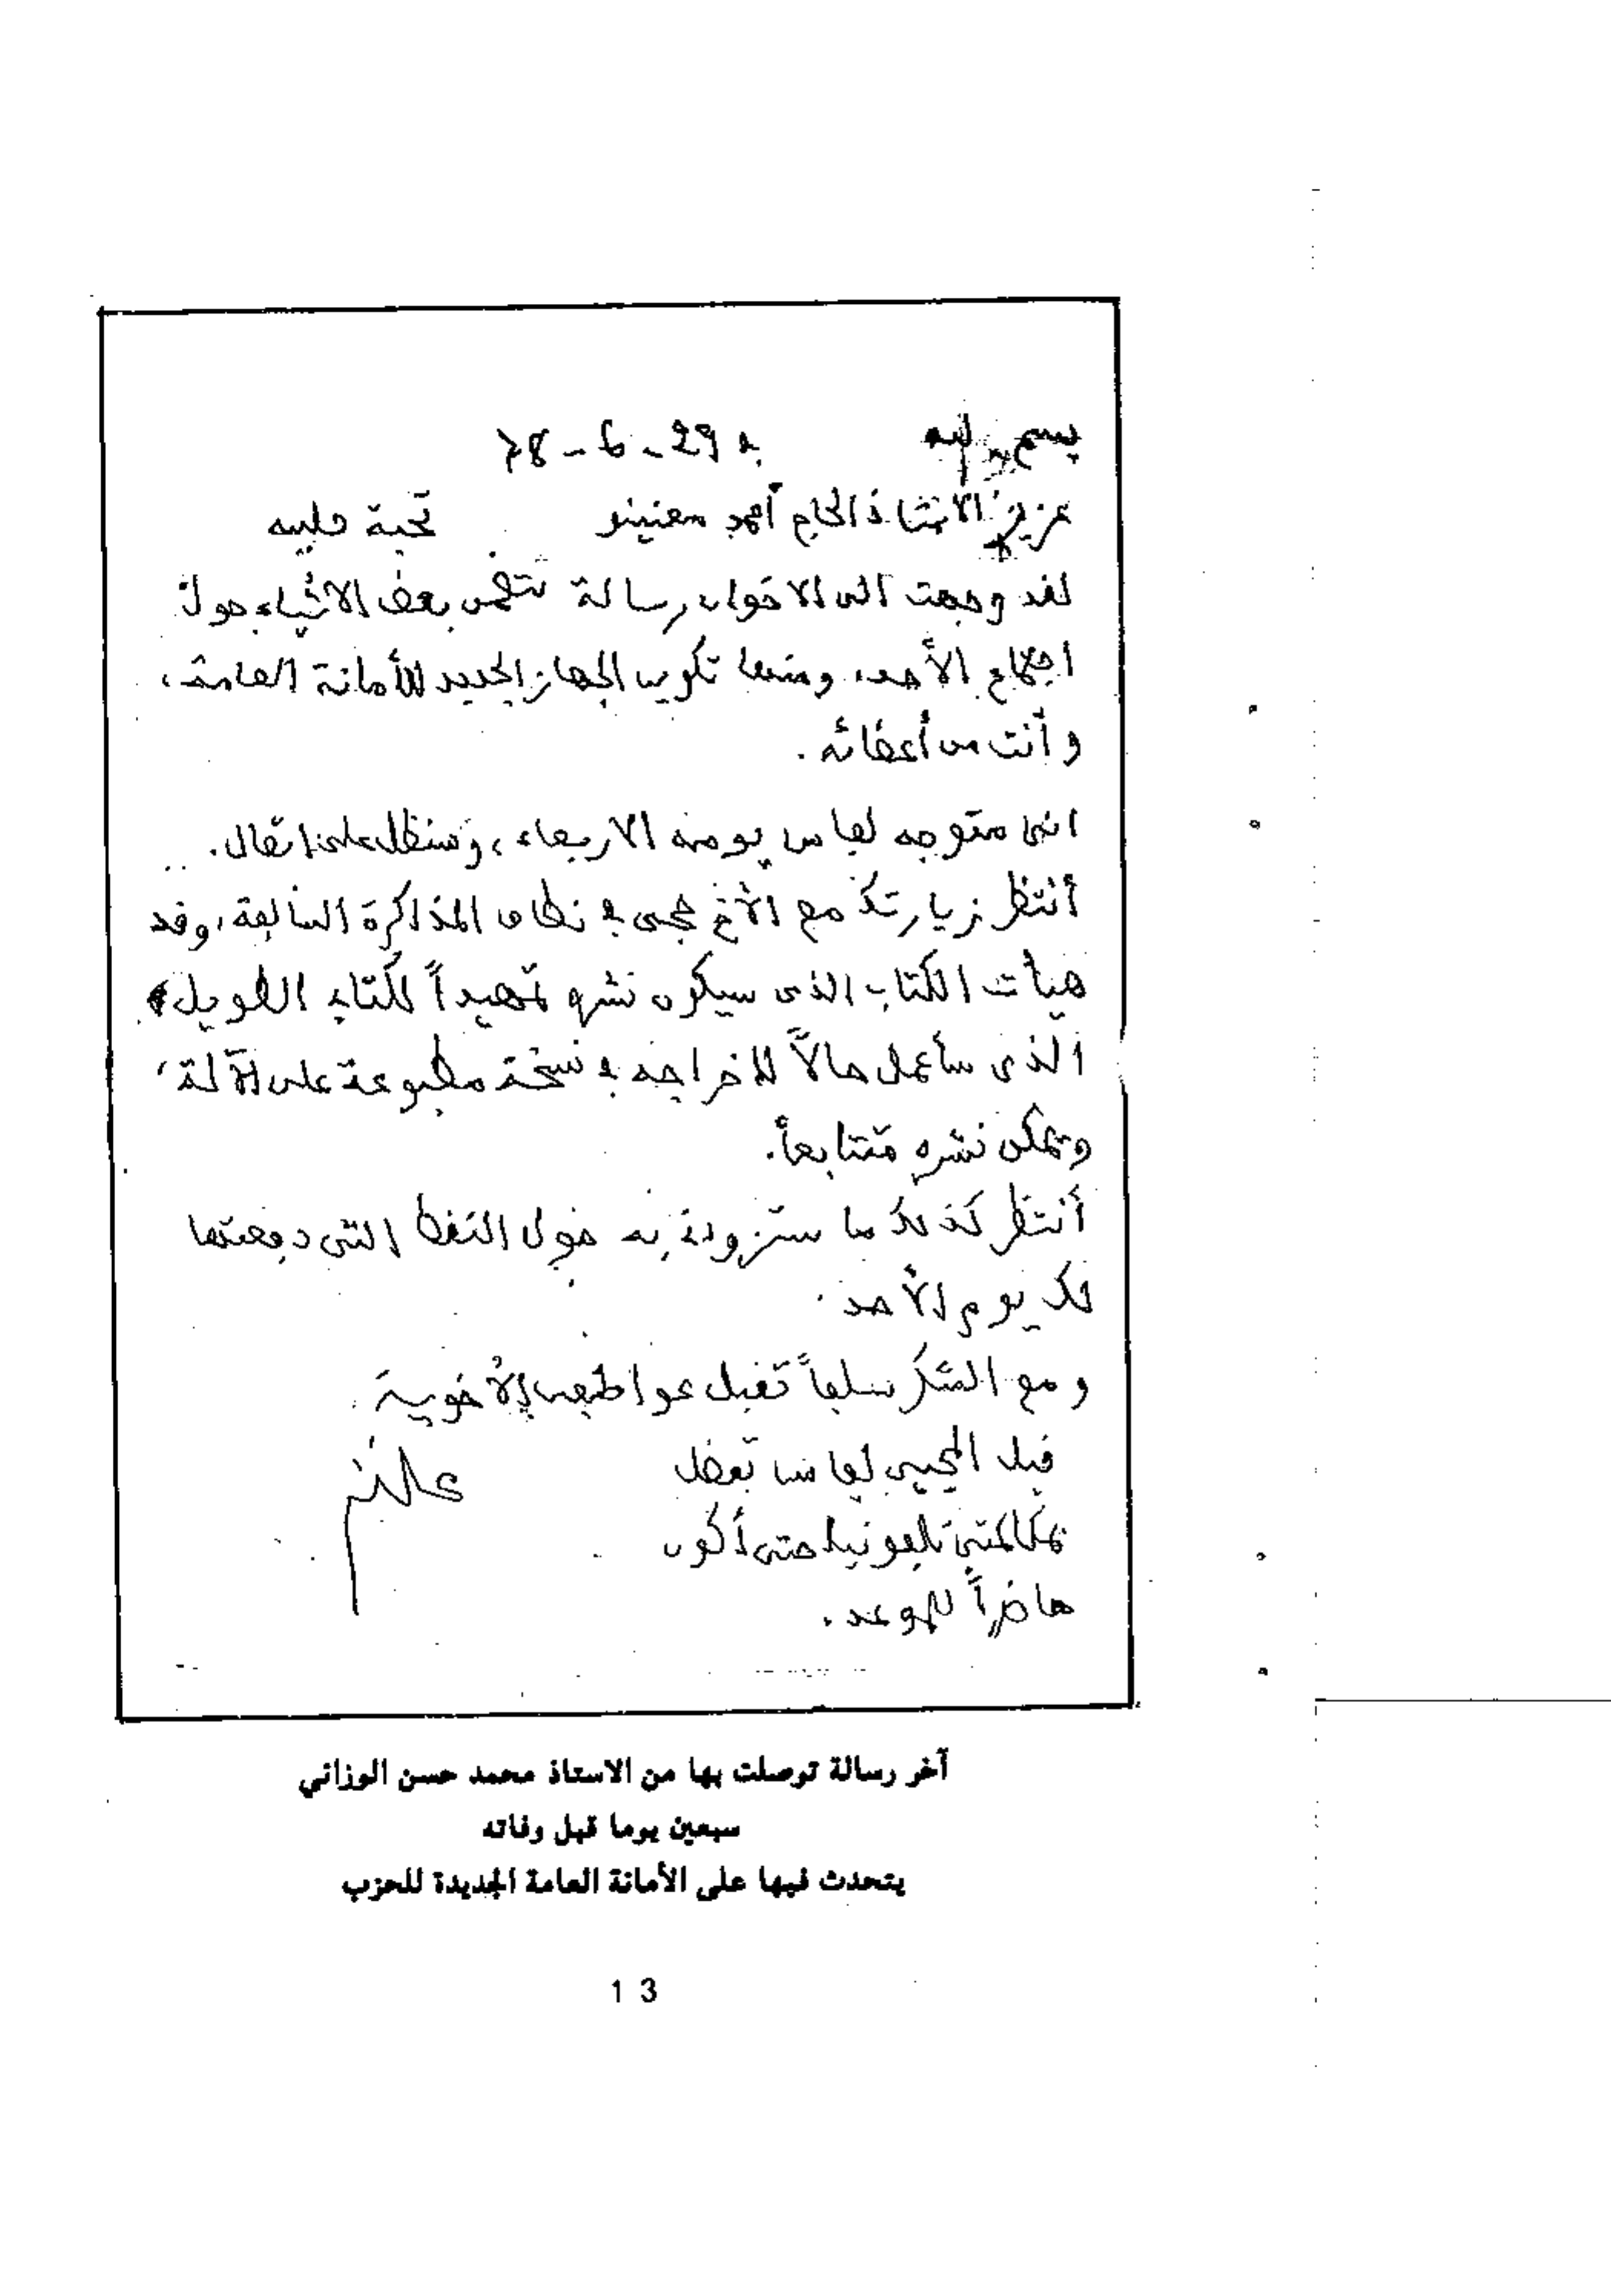 بسم الله 29-6-78
عزيزي الاستاذ الحاج أحمد معنينو تحية طيبة
لقد وجهت الى الاخوان رسالة تتضمن بعض الاشياء حول
اجتماع الأحد، ومنها تكوين الجهاز الجديد للأمانة العامة،
وأنت من أعضائه.
انى متوجه لفاس يومه الاربعاء، وسنظل على اتصال.
أنتظر زيارتك مع الأخ في نطاق المذاكرة السالفة، وقد
هيأت الكتاب الذى سيكون نشره تمهيداً للكتاب الطويل
الذى سأعمل حالاً لاخراجه في نسخة مطبوعة على الآلة،
ويمكن نشره متتابعاً.
أنتظر كذلك ما ستزودني به حول النقط التى دفعتها
لك يوم الأحد.
ومع الشكر سلفاً تقبل عواطفى الأخوية.
قبل المجيء لفاس تفضل
بمكالمتى تليفونيا حتى أكون
حاضراً للموعد.
آخر رسالة توصلت بها من الاستاذ محمد حسن الوزاني
سبعين يوما قبل وفاته
يتحدث فيها على الأمانة العامة الجديدة للحزب
13